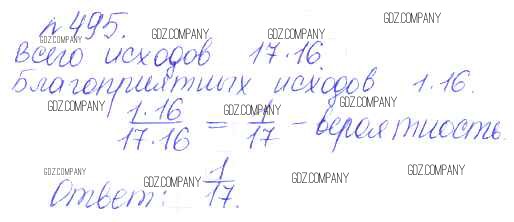 №495.
GDZ.COMPANY GDZ.COMPANY GDZ.COMPANY
Всего исходов 17·16.
GDZ.COMPANY
Благоприятных исходов 1·16.
GDZ.COMPANY GDZ.COMPANY GDZ.COMPANY
1·16/17·16 = 1/17 - вероятность.
GDZ.COMPANY GDZ.COMPANY GDZ.COMPANY
Ответ: 1/17.